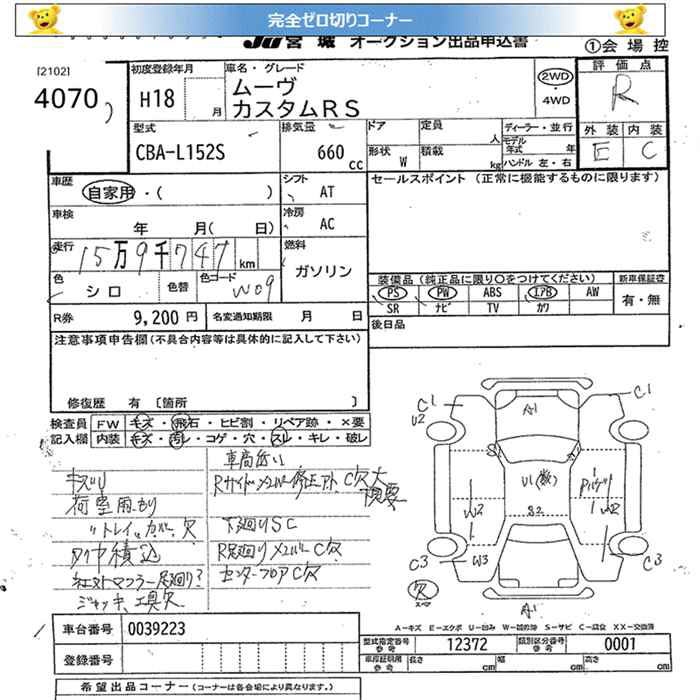 完全ゼロ切りコーナー
JU宮城 オークション出品申込書 ①会場控
[2102]
4070
初度登録年月
H18 月
車名・グレード
ムーヴ
カスタムRS
2WD
・
4WD
評価点
R
外装 内装
E C
型式
CBA-L152S
排気量
660 cc
ドア 定員 人
形状 W 積載 kg
ディーラー・並行
モデル年式 年
ハンドル 左・右
車歴
自家用・( )
シフト AT
セールスポイント (正常に機能するものに限ります)
車検
年 月( 日)
冷房 AC
走行
15万9千747 km
燃料
ガソリン
色
シロ
色替
色コード W09
装備品(純正品に限り○をつけてください) 新車保証書
PS PW ABS エアB AW 有・無
SR ナビ TV カワ
R券 9,200円 名変通知期限 月 日
後日品
注意事項申告欄(不具合内容等は具体的に記入して下さい)
修復歴 有 〔箇所 〕
検査員 FW キズ・飛石・ヒビ割・リペア跡・×要
記入欄 内装 キズ・汚レ・コゲ・穴・スレ・キレ・破レ
車高低い
キズリ
Rサイドメンバー修正アト、C欠大
現要
荷室用カリ
〃トレイ、カバー欠
下廻りSC
タイヤ積込
R足廻りメンバーC欠
社エアストマフラー足廻り?
センターフロアC欠
ジャッキ、工具欠
A1
C1 C1
U2
S
U1(数)
W2 S2 W2
C3 W3 C3
欠
スペア
A1
A-キズ E-エクボ U-凹み W-波の跡 S-サビ C-腐食 XX-交換済
車台番号 0039223
型式指定番号 参考 12372 類別区分番号 参考 0001
登録番号
車庫証明用 参考 長さ cm 幅 cm 高さ cm
希望出品コーナー(コーナーは各会場により異なります。)